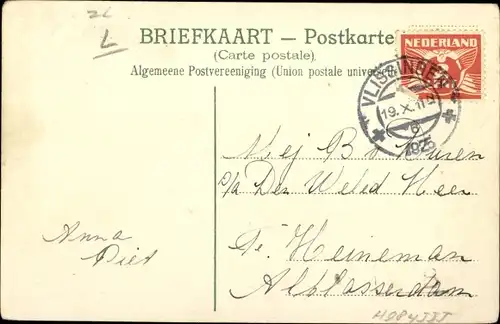 L
BRIEFKAART — Postkarte
(Carte postale)
Algemeene Postvereeniging (Union postale univers
NEDERLAND
VLISSINGEN
19.X.11
1925
Mej B
p/a Den Weled Heer
Heineman
Alblasserdam
Anna
Piet